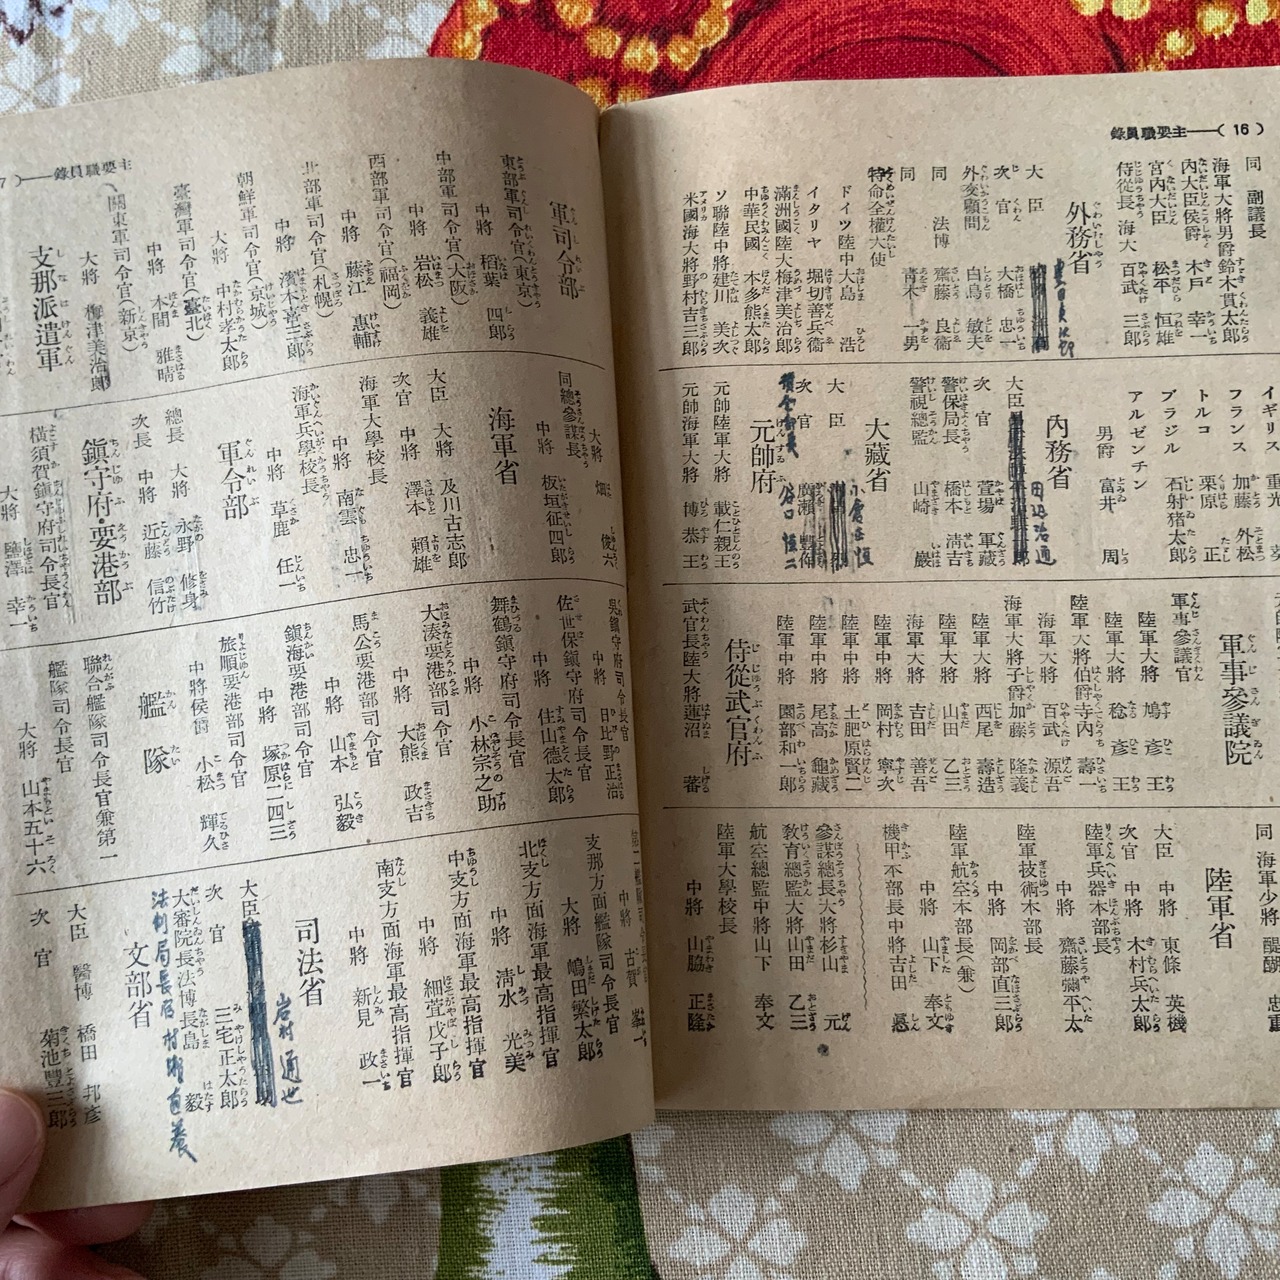 主要職員錄――( 16 )
同 副議長
海軍大將男爵 鈴木貫太郎
內大臣侯爵 木戶 幸一
宮內大臣 松平 恒雄
侍從長 海大 百武 三郎
外務省
大臣
次官 大橋 忠一
外交顧問 白鳥 敏夫
同 法博 齋藤 良衞
同 靑木 一男
特命全權大使
ドイツ 陸中 大島 浩
イタリヤ 堀切善兵衞
滿洲國 陸大 梅津美治郎
中華民國 本多熊太郎
ソ聯 陸中將 建川 美次
米國 海大將 野村吉三郎
イギリス 重光 葵
フランス 加藤 外松
トルコ 栗原 正
ブラジル 石射猪太郎
アルゼンチン
男爵 富井 周
內務省
大臣
田辺治通
次官 萱場 軍藏
警保局長 橋本 淸吉
警視總監 山崎 巖
大藏省
大臣
小倉正恒
次官 廣瀨 豐作
谷口 恒二
元帥府
元帥陸軍大將 載仁親王
元帥海軍大將 博恭王
軍事參議院
軍事參議官
陸軍大將 鳩彥王
陸軍大將 稔彥王
陸軍大將伯爵 寺內 壽一
海軍大將 百武 源吾
海軍大將子爵 加藤 隆義
陸軍大將 西尾 壽造
陸軍大將 山田 乙三
海軍大將 吉田 善吾
陸軍中將 岡村 寧次
陸軍中將 土肥原賢二
陸軍中將 尾高 龜藏
陸軍中將 園部和一郎
侍從武官府
武官長陸大將 蓮沼 蕃
同 海軍少將 醍醐 忠重
陸軍省
大臣 中將 東條 英機
次官 中將 木村兵太郎
陸軍兵器本部長
中將 齋藤彌平太
陸軍技術本部長
中將 岡部直三郎
陸軍航空本部長(兼)
中將 山下 奉文
機甲本部長中將 吉田 悳
參謀總長大將 杉山 元
敎育總監大將 山田 乙三
航空總監中將 山下 奉文
陸軍大學校長
中將 山脇 正隆
7 )――主要職員錄
軍司令部
東部軍司令官(東京)
中將 稻葉 四郎
中部軍司令官(大阪)
中將 岩松 義雄
西部軍司令官(福岡)
中將 藤江 惠輔
北部軍司令官(札幌)
中將 濱本喜三郎
朝鮮軍司令官(京城)
大將 中村孝太郎
臺灣軍司令官(臺北)
中將 本間 雅晴
關東軍司令官(新京)
大將 梅津美治郎
支那派遣軍
大將 畑 俊六
同總參謀長
中將 板垣征四郎
海軍省
大臣 大將 及川古志郎
次官 中將 澤本 賴雄
海軍大學校長
中將 南雲 忠一
海軍兵學校長
中將 草鹿 任一
軍令部
總長 大將 永野 修身
次長 中將 近藤 信竹
鎭守府・要港部
橫須賀鎭守府司令長官
大將 鹽澤 幸一
吳鎭守府司令長官
中將 日比野正治
佐世保鎭守府司令長官
中將 住山德太郎
舞鶴鎭守府司令長官
中將 小林宗之助
大湊要港部司令官
中將 大熊 政吉
馬公要港部司令官
中將 山本 弘毅
鎭海要港部司令官
中將 塚原二四三
旅順要港部司令官
中將侯爵 小松 輝久
艦隊
聯合艦隊司令長官兼第一
艦隊司令長官
大將 山本五十六
中將 古賀 峯一
支那方面艦隊司令長官
大將 嶋田繁太郎
北支方面海軍最高指揮官
中將 淸水 光美
中支方面海軍最高指揮官
中將 細萱戊子郎
南支方面海軍最高指揮官
中將 新見 政一
司法省
大臣
岩村通世
次官 三宅正太郎
大審院長法博 長島 毅
文部省
大臣 醫博 橋田 邦彥
次官 菊池豐三郎